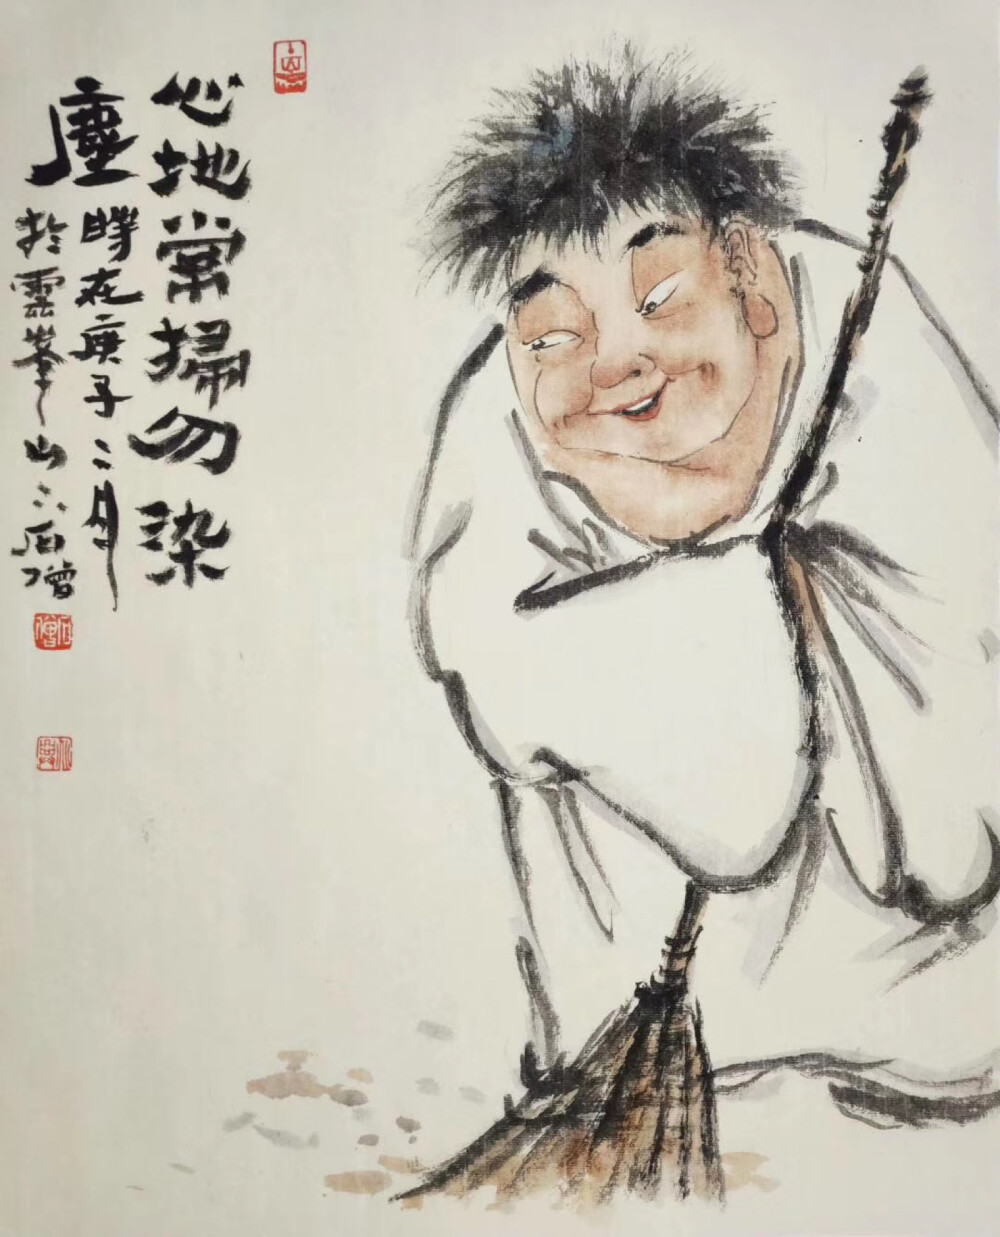 心地常掃勿染
塵 時在庚子二月
於雲峯山六石僧
石僧